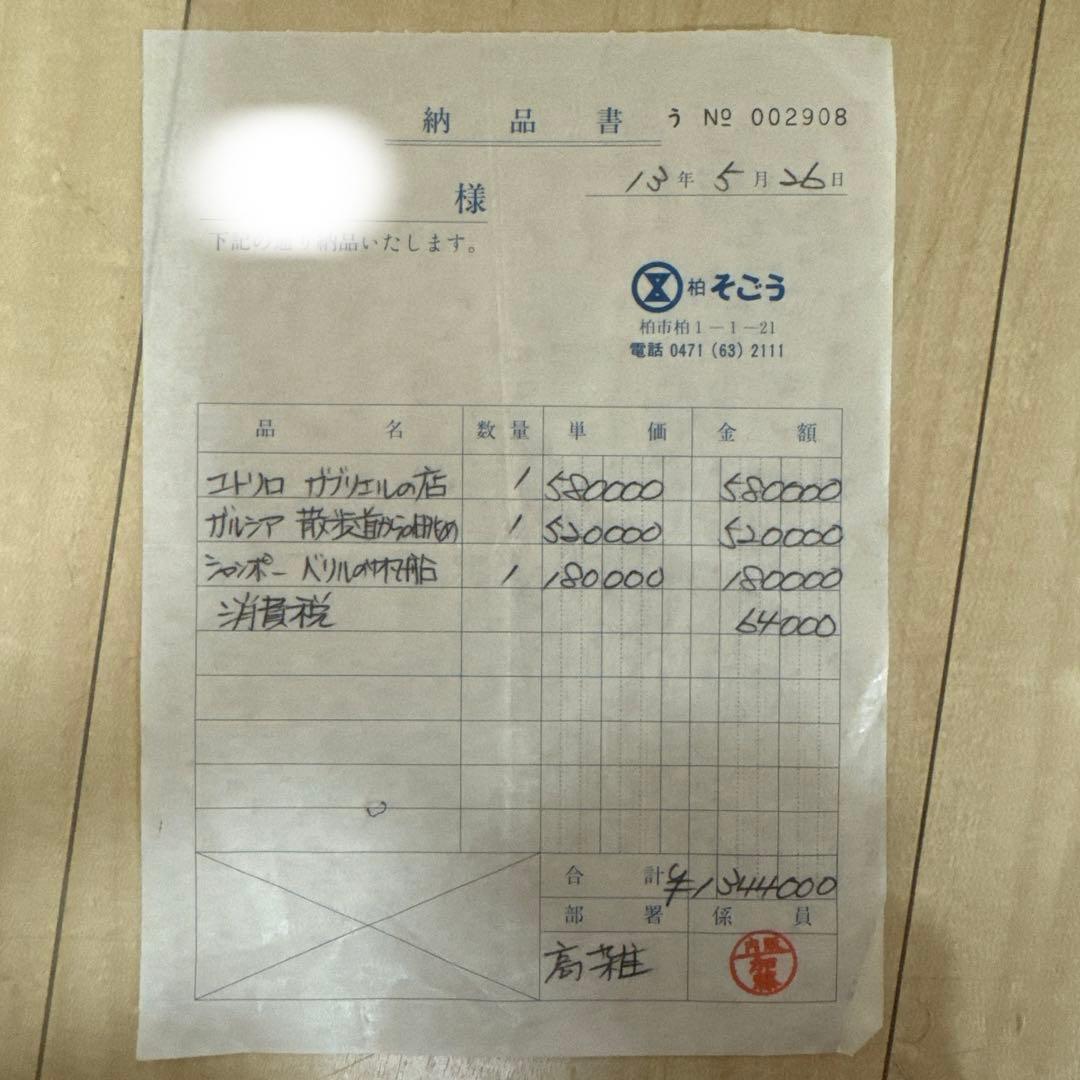 納品書 う № 002908
13年5月26日
様
下記の通り納品いたします。
柏そごう
柏市柏1−1−21
電話 0471 (63) 2111
品名 数量 単価 金額
ユトリロ ガブリエルの店 1 580000 580000
ガルシア 散歩道からの眺め 1 520000 520000
シャンポー ベリルの 船 1 180000 180000
消費税 64000
合計 ¥1344000
部署 係員
高雑